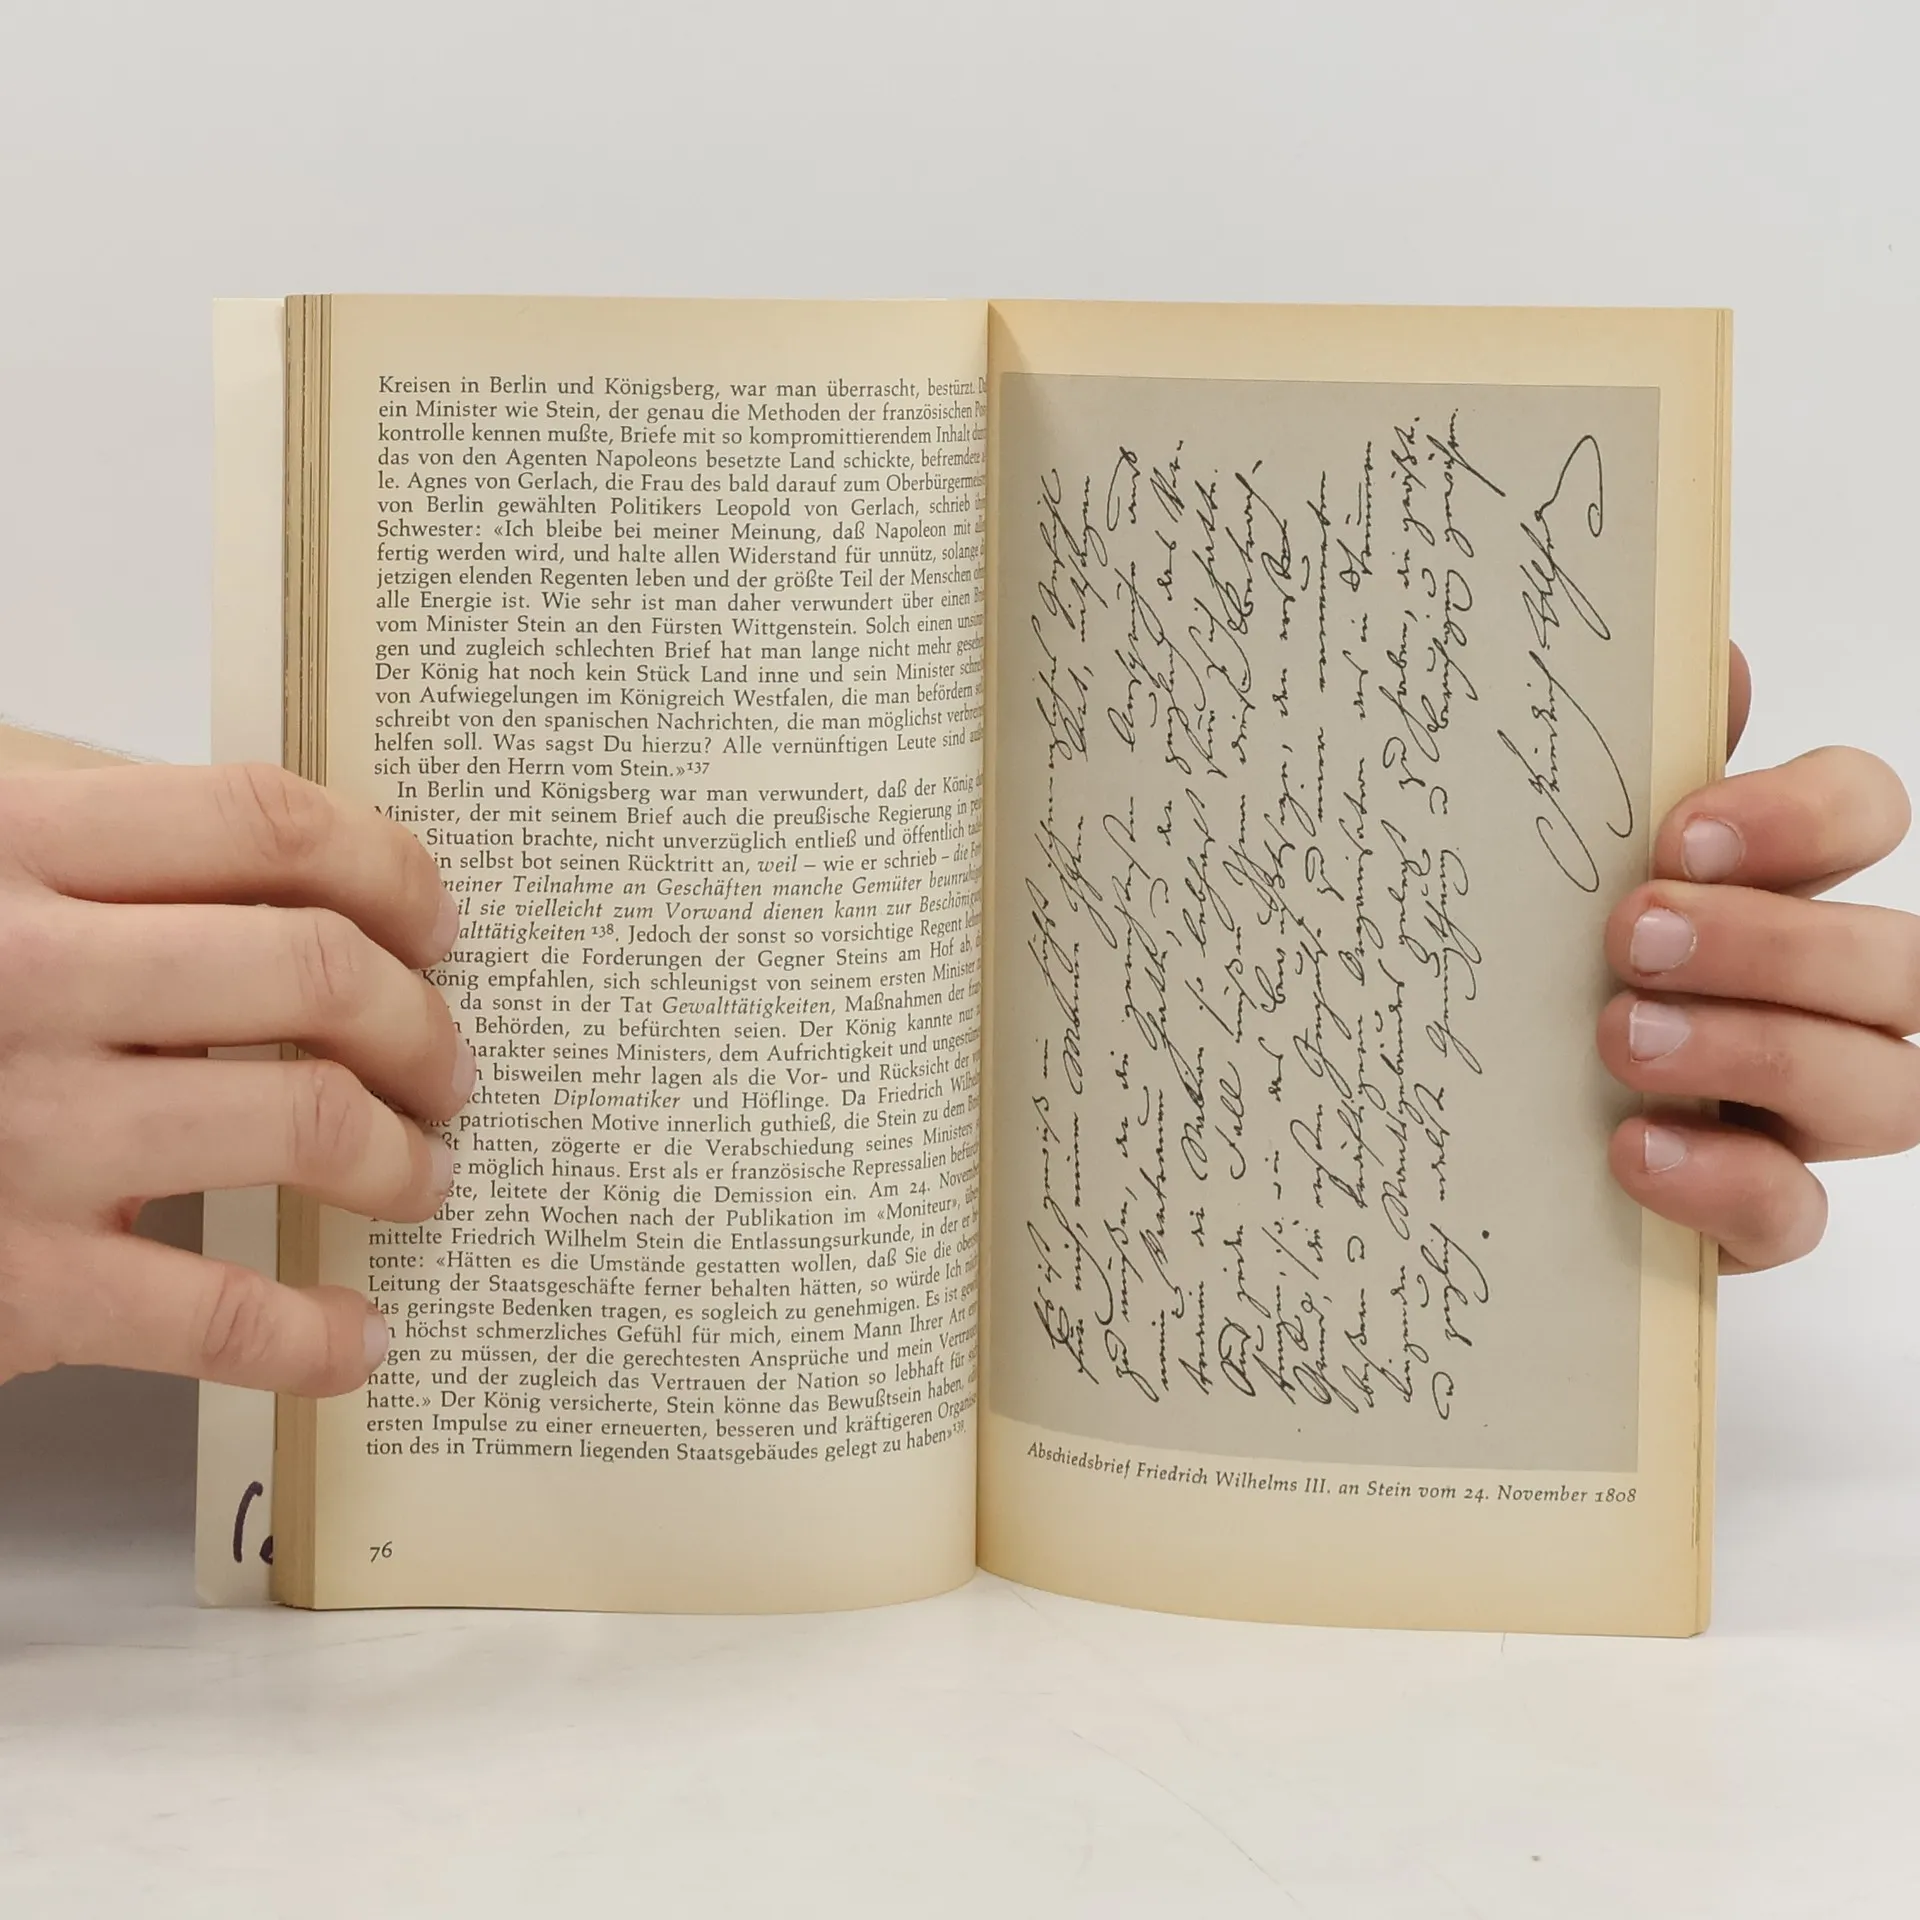 Kreisen in Berlin und Königsberg, war man überrascht, bestürzt.
ein Minister wie Stein, der genau die Methoden der französischen
kontrolle kennen mußte, Briefe mit so kompromittierendem Inhalt
das von den Agenten Napoleons besetzte Land schickte, befremdete
le. Agnes von Gerlach, die Frau des bald darauf zum Oberbürgermeis
von Berlin gewählten Politikers Leopold von Gerlach, schrieb
Schwester: «Ich bleibe bei meiner Meinung, daß Napoleon mit
fertig werden wird, und halte allen Widerstand für unnütz, solange
jetzigen elenden Regenten leben und der größte Teil der Menschen
alle Energie ist. Wie sehr ist man daher verwundert über einen
vom Minister Stein an den Fürsten Wittgenstein. Solch einen unsin
gen und zugleich schlechten Brief hat man lange nicht mehr gese
Der König hat noch kein Stück Land inne und sein Minister
von Aufwiegelungen im Königreich Westfalen, die man befördern
schreibt von den spanischen Nachrichten, die man möglichst verbre
helfen soll. Was sagst Du hierzu? Alle vernünftigen Leute sind
sich über den Herrn vom Stein.»137
In Berlin und Königsberg war man verwundert, daß der König
Minister, der mit seinem Brief auch die preußische Regierung in
Situation brachte, nicht unverzüglich entließ und öffentlich
in selbst bot seinen Rücktritt an, weil – wie er schrieb – die
meiner Teilnahme an Geschäften manche Gemüter beunruhig
il sie vielleicht zum Vorwand dienen kann zur Beschönigung
alttätigkeiten 138. Jedoch der sonst so vorsichtige Regent
ouragiert die Forderungen der Gegner Steins am Hof ab,
König empfahlen, sich schleunigst von seinem ersten Minister
da sonst in der Tat Gewalttätigkeiten, Maßnahmen der
Behörden, zu befürchten seien. Der König kannte nur
harakter seines Ministers, dem Aufrichtigkeit und ungestüm
bisweilen mehr lagen als die Vor- und Rücksicht der
ichteten Diplomatiker und Höflinge. Da Friedrich Wilhelm
patriotischen Motive innerlich guthieß, die Stein zu dem
ßt hatten, zögerte er die Verabschiedung seines Ministers
e möglich hinaus. Erst als er französische Repressalien befürch
ste, leitete der König die Demission ein. Am 24. November
über zehn Wochen nach der Publikation im «Moniteur», über
mittelte Friedrich Wilhelm Stein die Entlassungsurkunde, in der er
tonte: «Hätten es die Umstände gestatten wollen, daß Sie die oberste
Leitung der Staatsgeschäfte ferner behalten hätten, so würde Ich nicht
das geringste Bedenken tragen, es sogleich zu genehmigen. Es ist gewiß
höchst schmerzliches Gefühl für mich, einem Mann Ihrer Art
gen zu müssen, der die gerechtesten Ansprüche und mein Vertrauen
hatte, und der zugleich das Vertrauen der Nation so lebhaft für sich
hatte.» Der König versicherte, Stein könne das Bewußtsein haben, «die
ersten Impulse zu einer erneuerten, besseren und kräftigeren Organisa
tion des in Trümmern liegenden Staatsgebäudes gelegt zu haben»139.
76
Es ist gewiß ein höchst schmerzliches Gefühl
für mich, einem Manne Ihrer Art, entsagen
zu müssen, der die gerechtesten Ansprüche auf
mein Vertrauen hatte, u der zugleich das Ver-
trauen der Nation so lebhaft für sich hatte.
Auf jeden Fall müssen Ihnen diese
den
Grund, die ersten Impulse zu einer erneuerten
beßeren u kräftigeren Organisation des in Trümmern
liegenden Staatsgebäudes gelegt zu haben, die
u
Friedrich Wilhelm
Abschiedsbrief Friedrich Wilhelms III. an Stein vom 24. November 1808